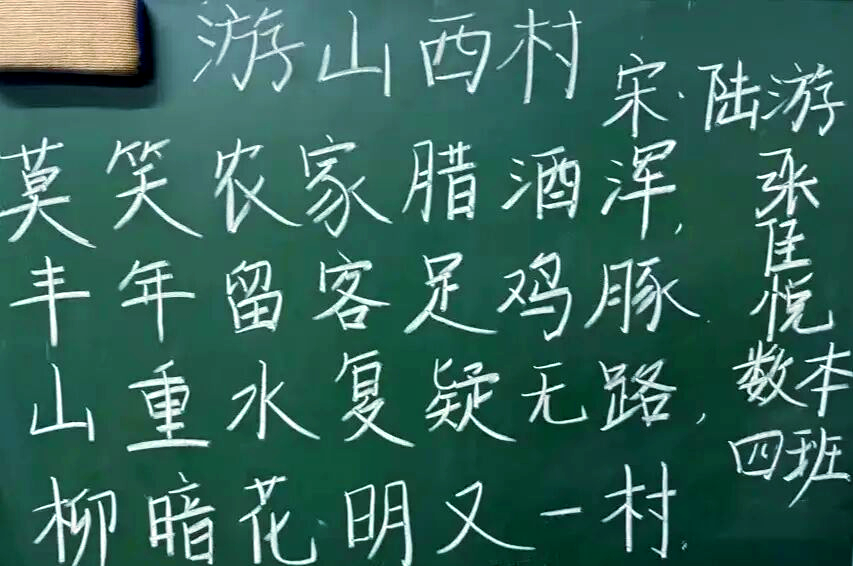 游山西村
宋·陆游
莫笑农家腊酒浑，
丰年留客足鸡豚
山重水复疑无路，
柳暗花明又一村
张佳悦
数本
四班